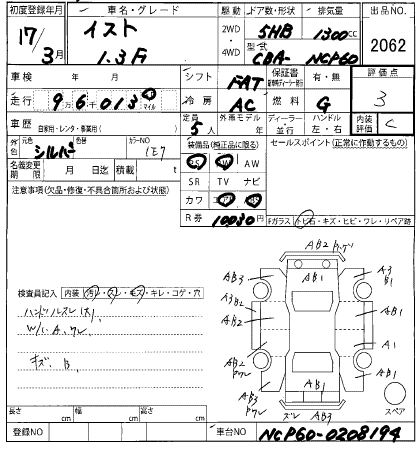 初度登録年月 車名・グレード 駆動 ドア数・形状 排気量 出品NO
17/3月 イスト 1.3F 2WD 4WD 5HB 1300cc 2062
型式 CBA- NCP60
車検 年 月 シフト FAT 保証書 有・無 評価点 3
走行 9万6千013 マイル 冷房 AC 燃料 G
車歴 自家用・レンタ・事業用( ) 定員 5人 外車モデル ディーラー・並行 ハンドル 左・右 内装評価 C
外色 元色 シルバー 色替 カラーNO 1E7
装備品(純正品に限る) セールスポイント(正常に作動するもの)
名義変更期限 月 日迄 積載 t
PS PW AW
SR TV ナビ
カワ
R券 10030円
注意事項(欠品・修復・不具合箇所および状態)
Fガラス トビ石・キズ・ヒビ・ワレ・リペア跡
検査員記入 内装 汚レ・スレ・キズ・キレ・コゲ・穴
ハンドルスレ(大)
W/L A,ワレ
キズ、B
AB2
AB3 AB1 A3 B1
A3B2 AB3
AB2
A1
AB2 ワレ
AB1
AB3 ワレ AB1
スレ AB3
スペア
長さ cm 幅 cm 高さ cm
登録NO 車台NO NCP60-0208194